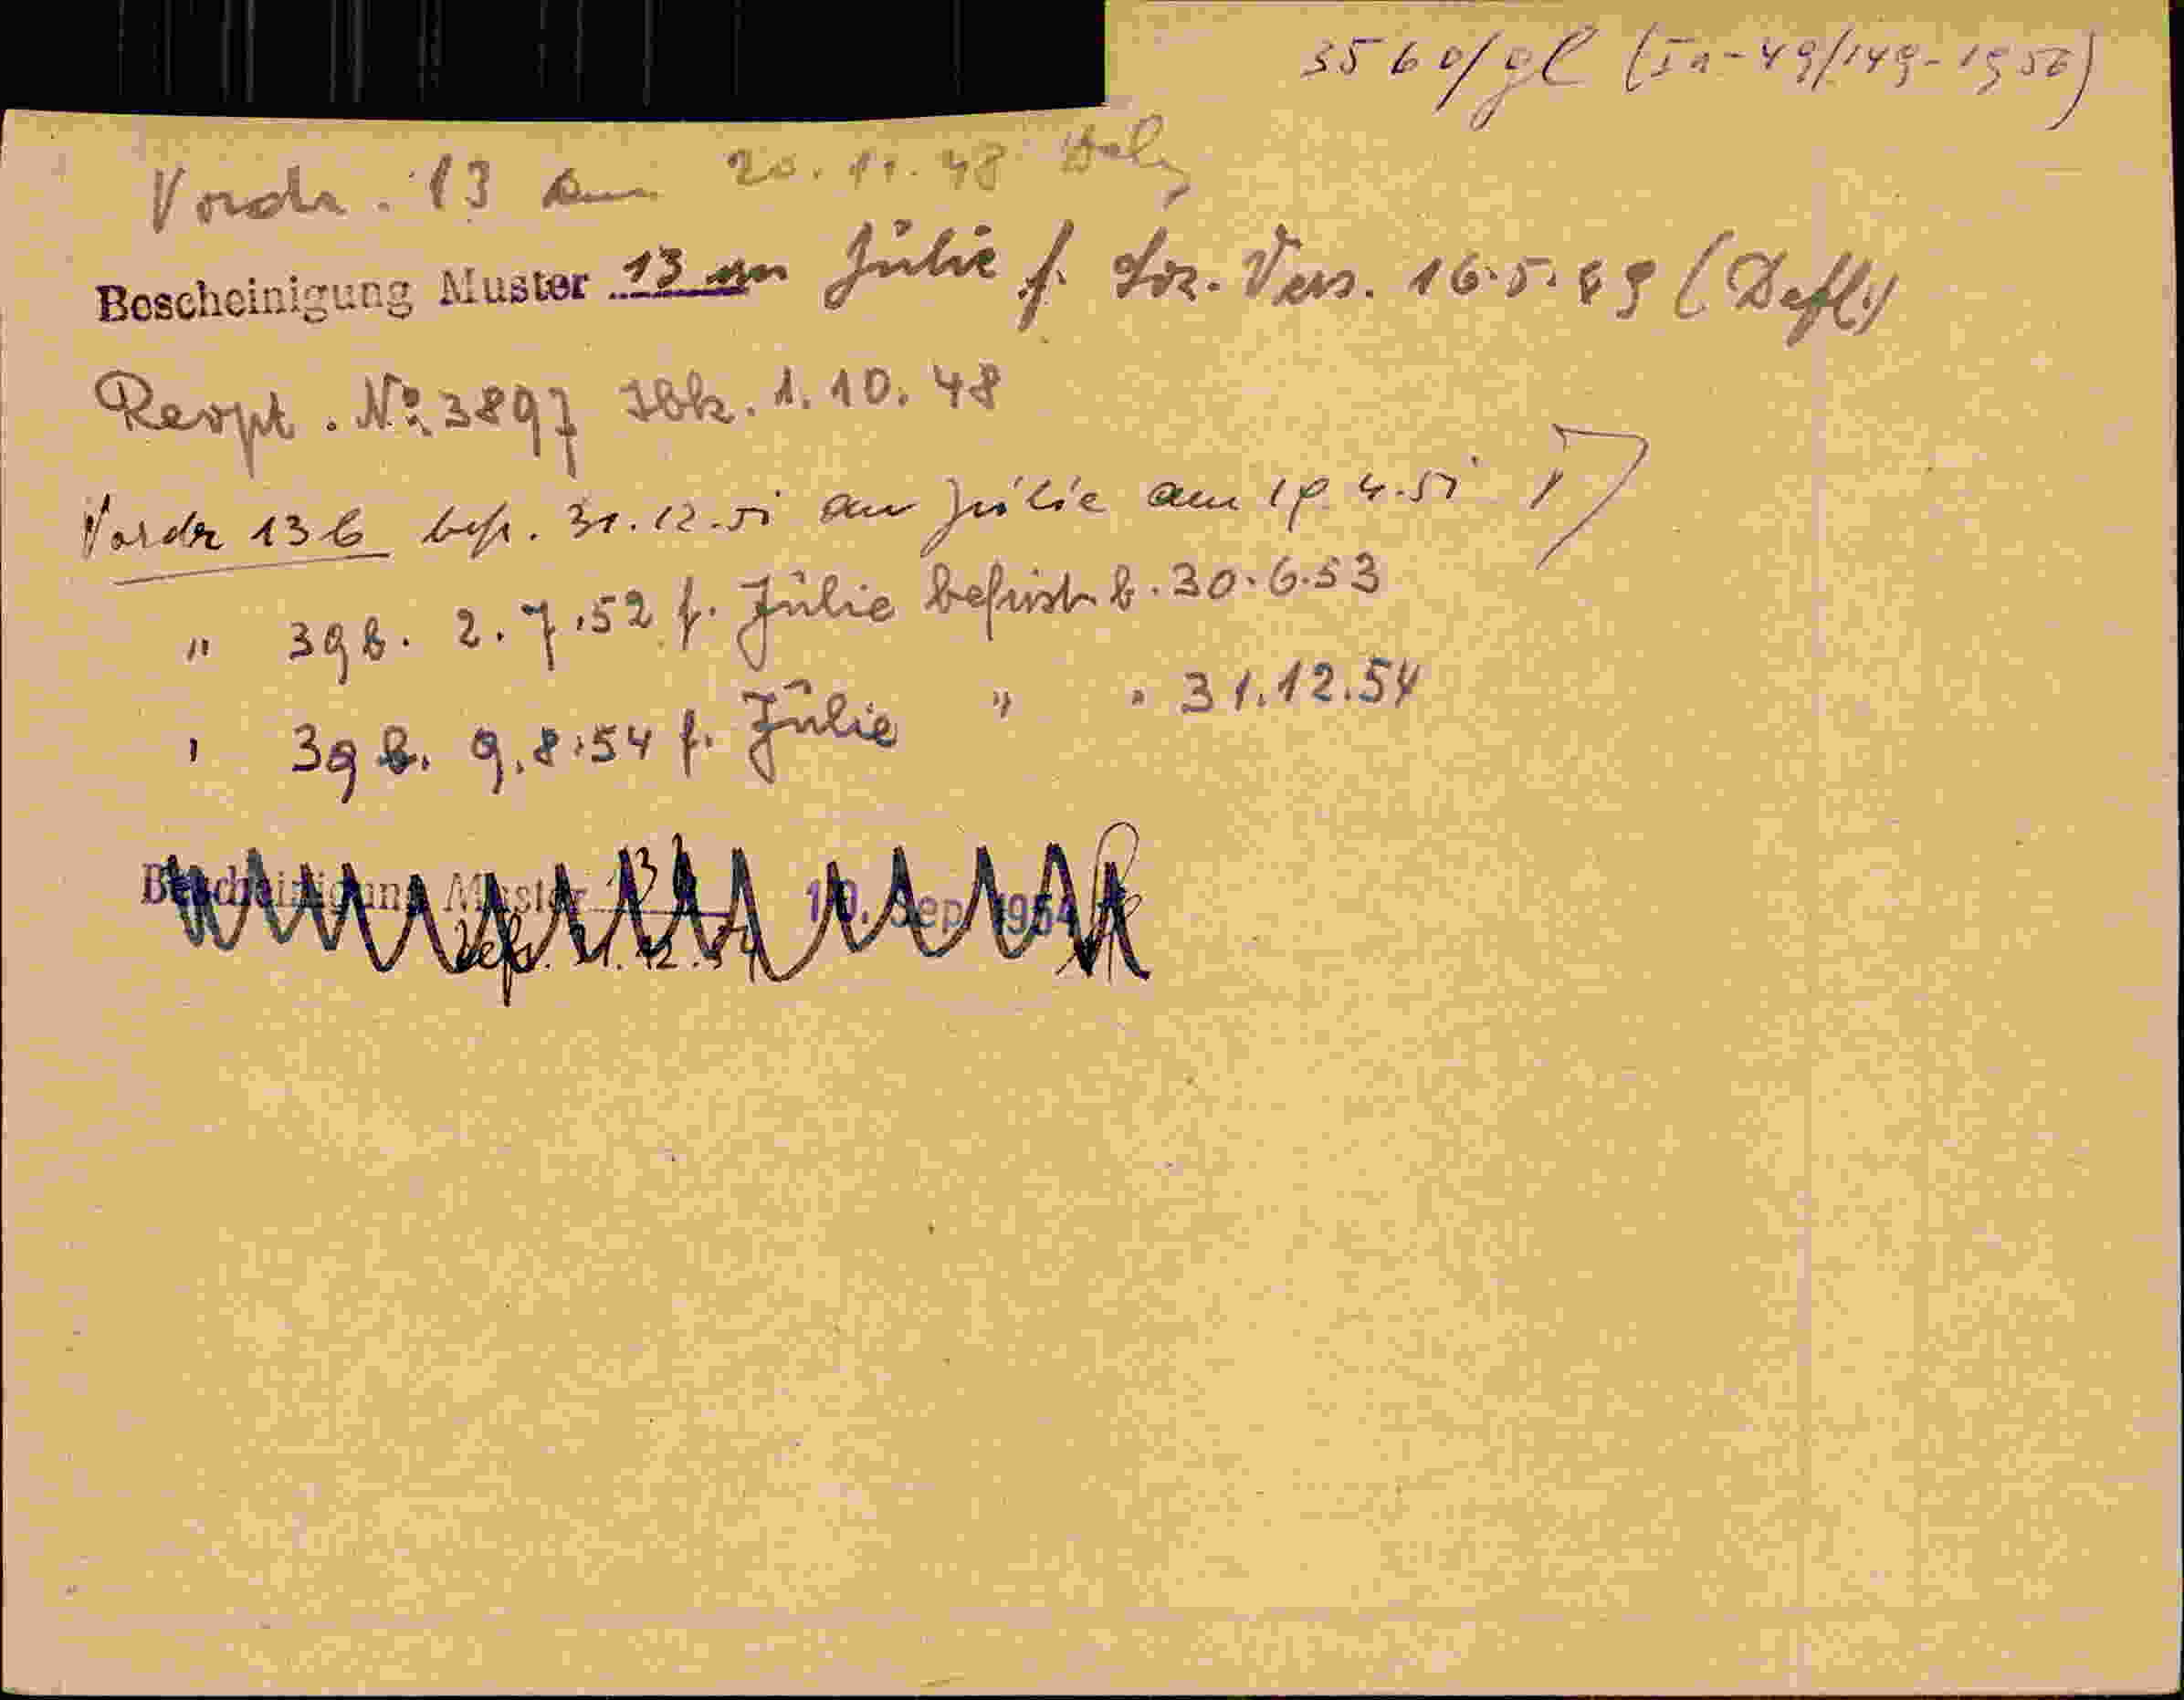 3560/gl (In-49/149-1956)
Vordr. 13 am 20.11.48
Bescheinigung Muster 13 an Julie f. Soz. Vers. 16.5.49 (Defl.)
Rexpt. No 3897 Ibk. 1.10.48
Vordr 13b befr. 31.12.51 an Julie am 19.4.51
" 39b. 2.7.52 f. Julie befrist. b. 30.6.53
" 39b. 9.8.54 f. Julie " " 31.12.54
Bescheinigung Muster 13b 10. Sep. 1954
befr. 31.12.54